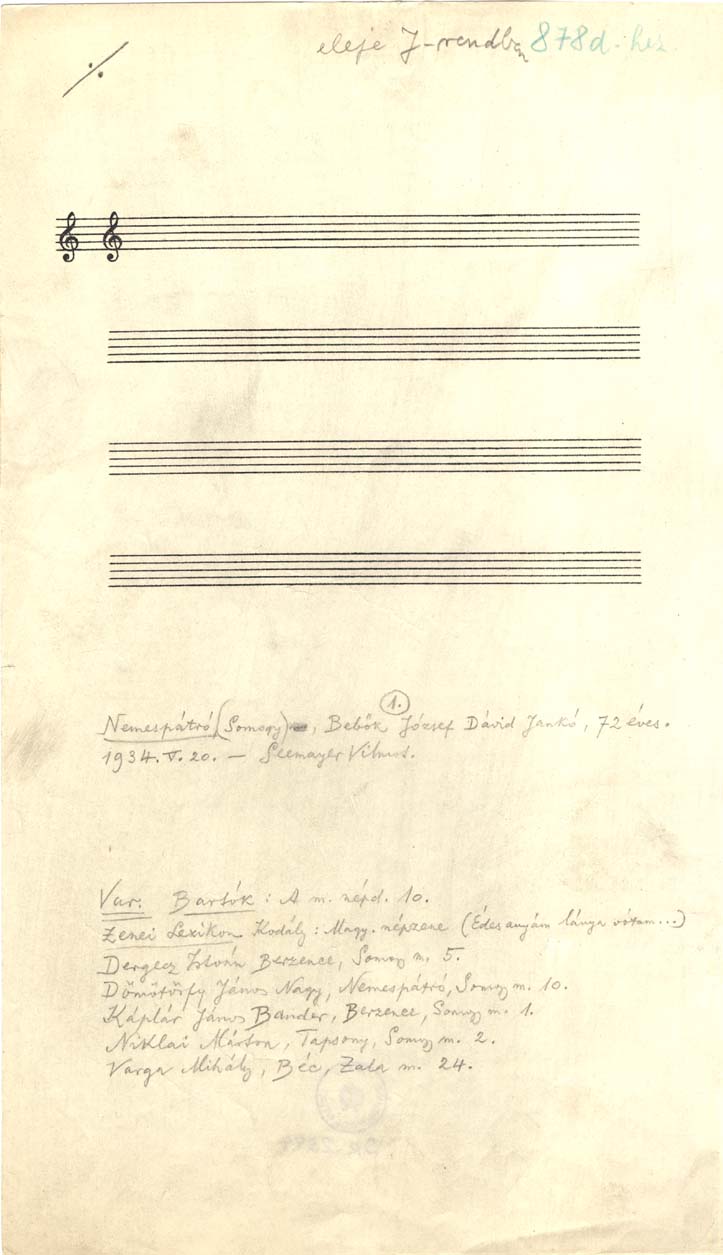 ·/·
eleje J-rendben 878d-hez
Nemespátró (Somogy), Bebők József Dávid Jankó, 72 éves.
1.
1934. V. 20. — Seemayer Vilmos.
Var: Bartók: A m. népd. 10.
Zenei Lexikon Kodály: Magy. népzene (Édes anyám lánya vótam...)
Dergecz István Berzence, Somogy m. 5.
Dömötörfy János Nagy, Nemespátró, Somogy m. 10.
Káplár János Bander, Berzence, Somogy m. 1.
Niklai Márton, Tapsony, Somogy m. 2.
Varga Mihály, Béc, Zala m. 24.